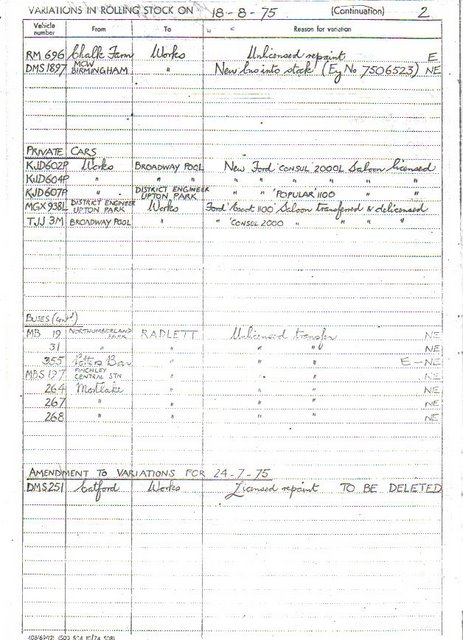 VARIATIONS IN ROLLING STOCK ON 18-8-75 (Continuation) 2
Vehicle number From To Reason for variation
RM 696 Chalk Farm Works Unlicensed repaint E
DMS 1897 MCW BIRMINGHAM " New bus into stock (Eng No 7506523) NE
PRIVATE CARS
KJD602P Works BROADWAY POOL New Ford 'CONSUL' 2000L Saloon licensed
KJD604P " " " " " " " "
KJD607P " DISTRICT ENGINEER UPTON PARK " " 'POPULAR' 1100 " "
MGX 938L DISTRICT ENGINEER UPTON PARK Works Ford 'Escort 1100' Saloon transferred & delicensed
TJJ 3M BROADWAY POOL " " 'CONSUL 2000 " " " "
BUSES (cont'd)
MB 19 NORTHUMBERLAND PARK RADLETT Unlicensed transfer NE
31 " " " " NE
355 Potters Bar " " " E-NE
MBS 197 FINCHLEY CENTRAL STN " " " NE
264 Mortlake " " " NE
267 " " " " NE
268 " " " " NE
AMENDMENT TO VARIATIONS FOR 24-7-75
DMS 251 Catford Works Licensed repaint TO BE DELETED